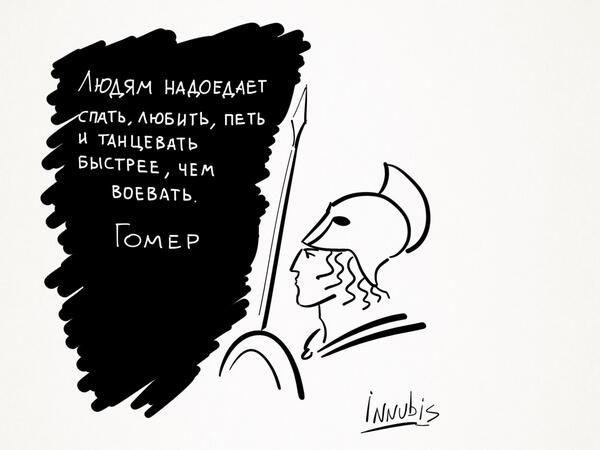 Людям надоедает
спать, любить, петь
и танцевать
быстрее, чем
воевать.
Гомер
innubis